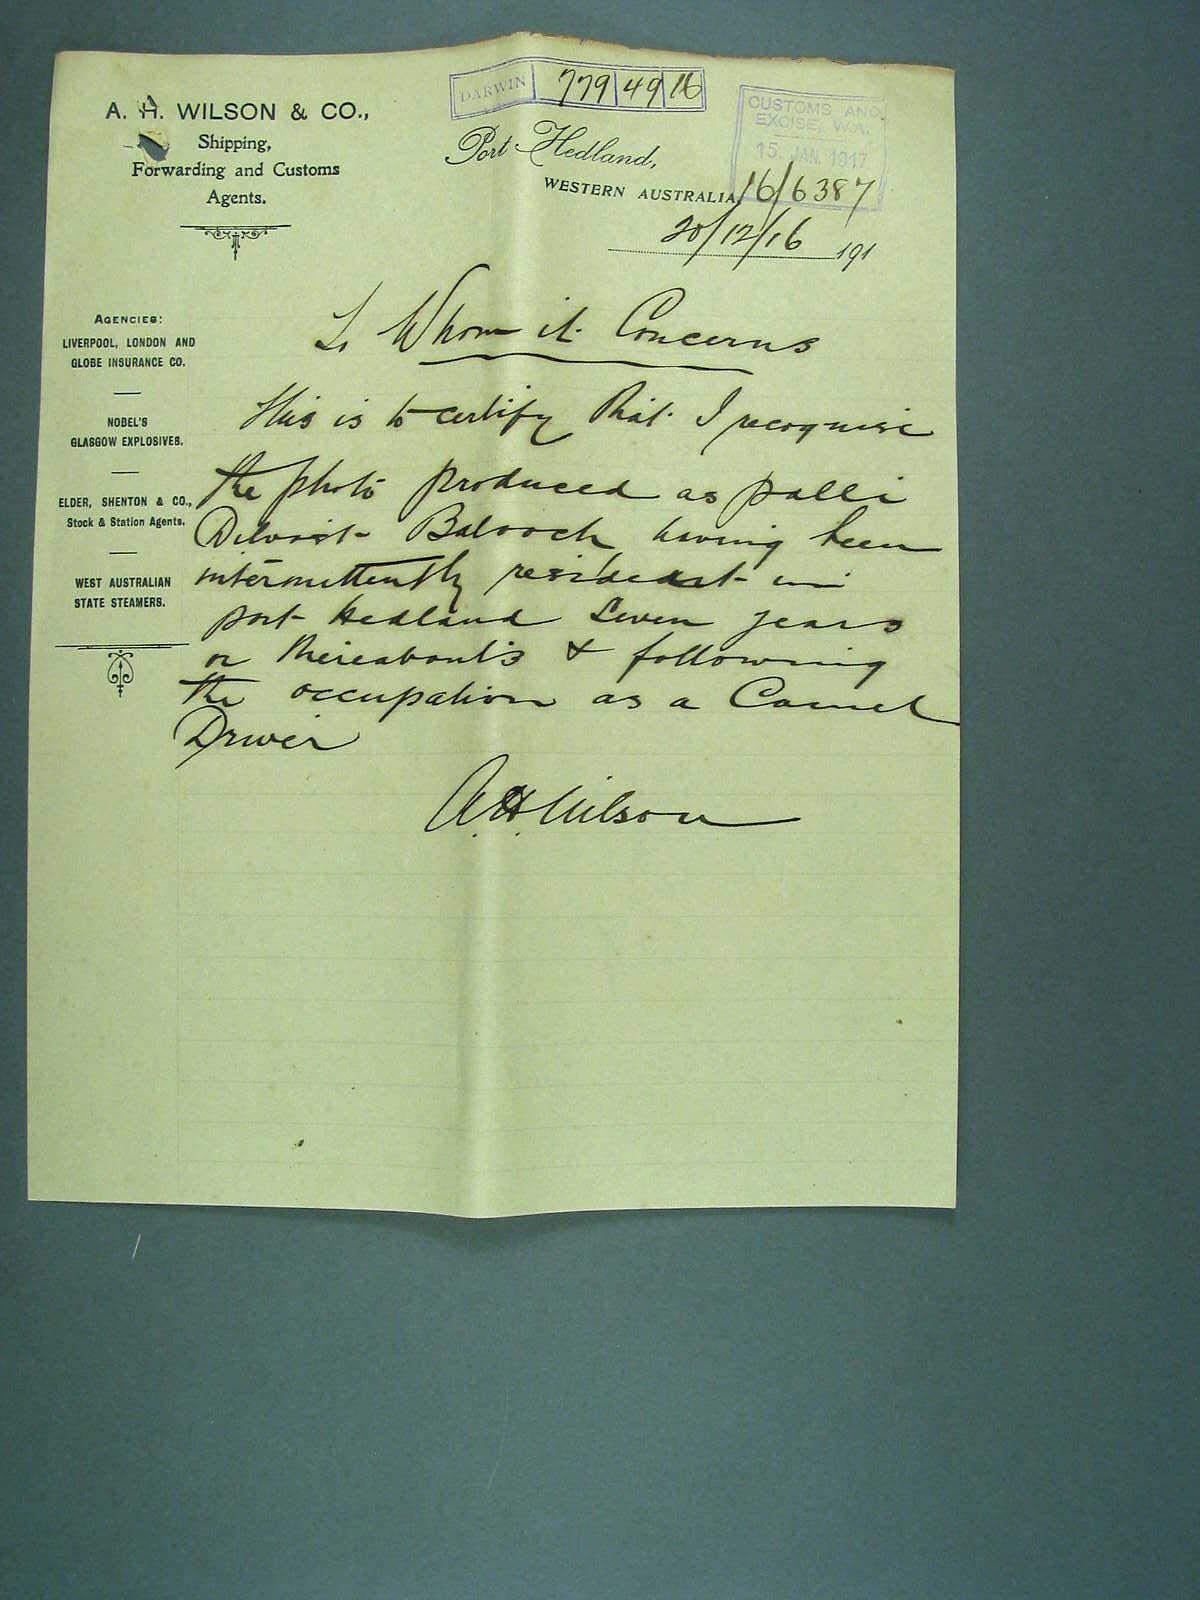 DARWIN 779 49 16
A. H. WILSON & CO.,
Shipping,
Forwarding and Customs
Agents.
CUSTOMS AND
EXCISE, W.A.
15. JAN. 1917
16/6387
Port Hedland,
WESTERN AUSTRALIA
20/12/16 191
AGENCIES:
LIVERPOOL, LONDON AND
GLOBE INSURANCE CO.
NOBEL'S
GLASGOW EXPLOSIVES.
ELDER, SHENTON & CO.,
Stock & Station Agents.
WEST AUSTRALIAN
STATE STEAMERS.
To Whom it Concerns
This is to certify that I recognise
the photo produced as palli
Balooch, having been
intermittently resident in
port Hedland Seven years
or thereabouts & following
the occupation as a Camel
Driver
A.H. Wilson